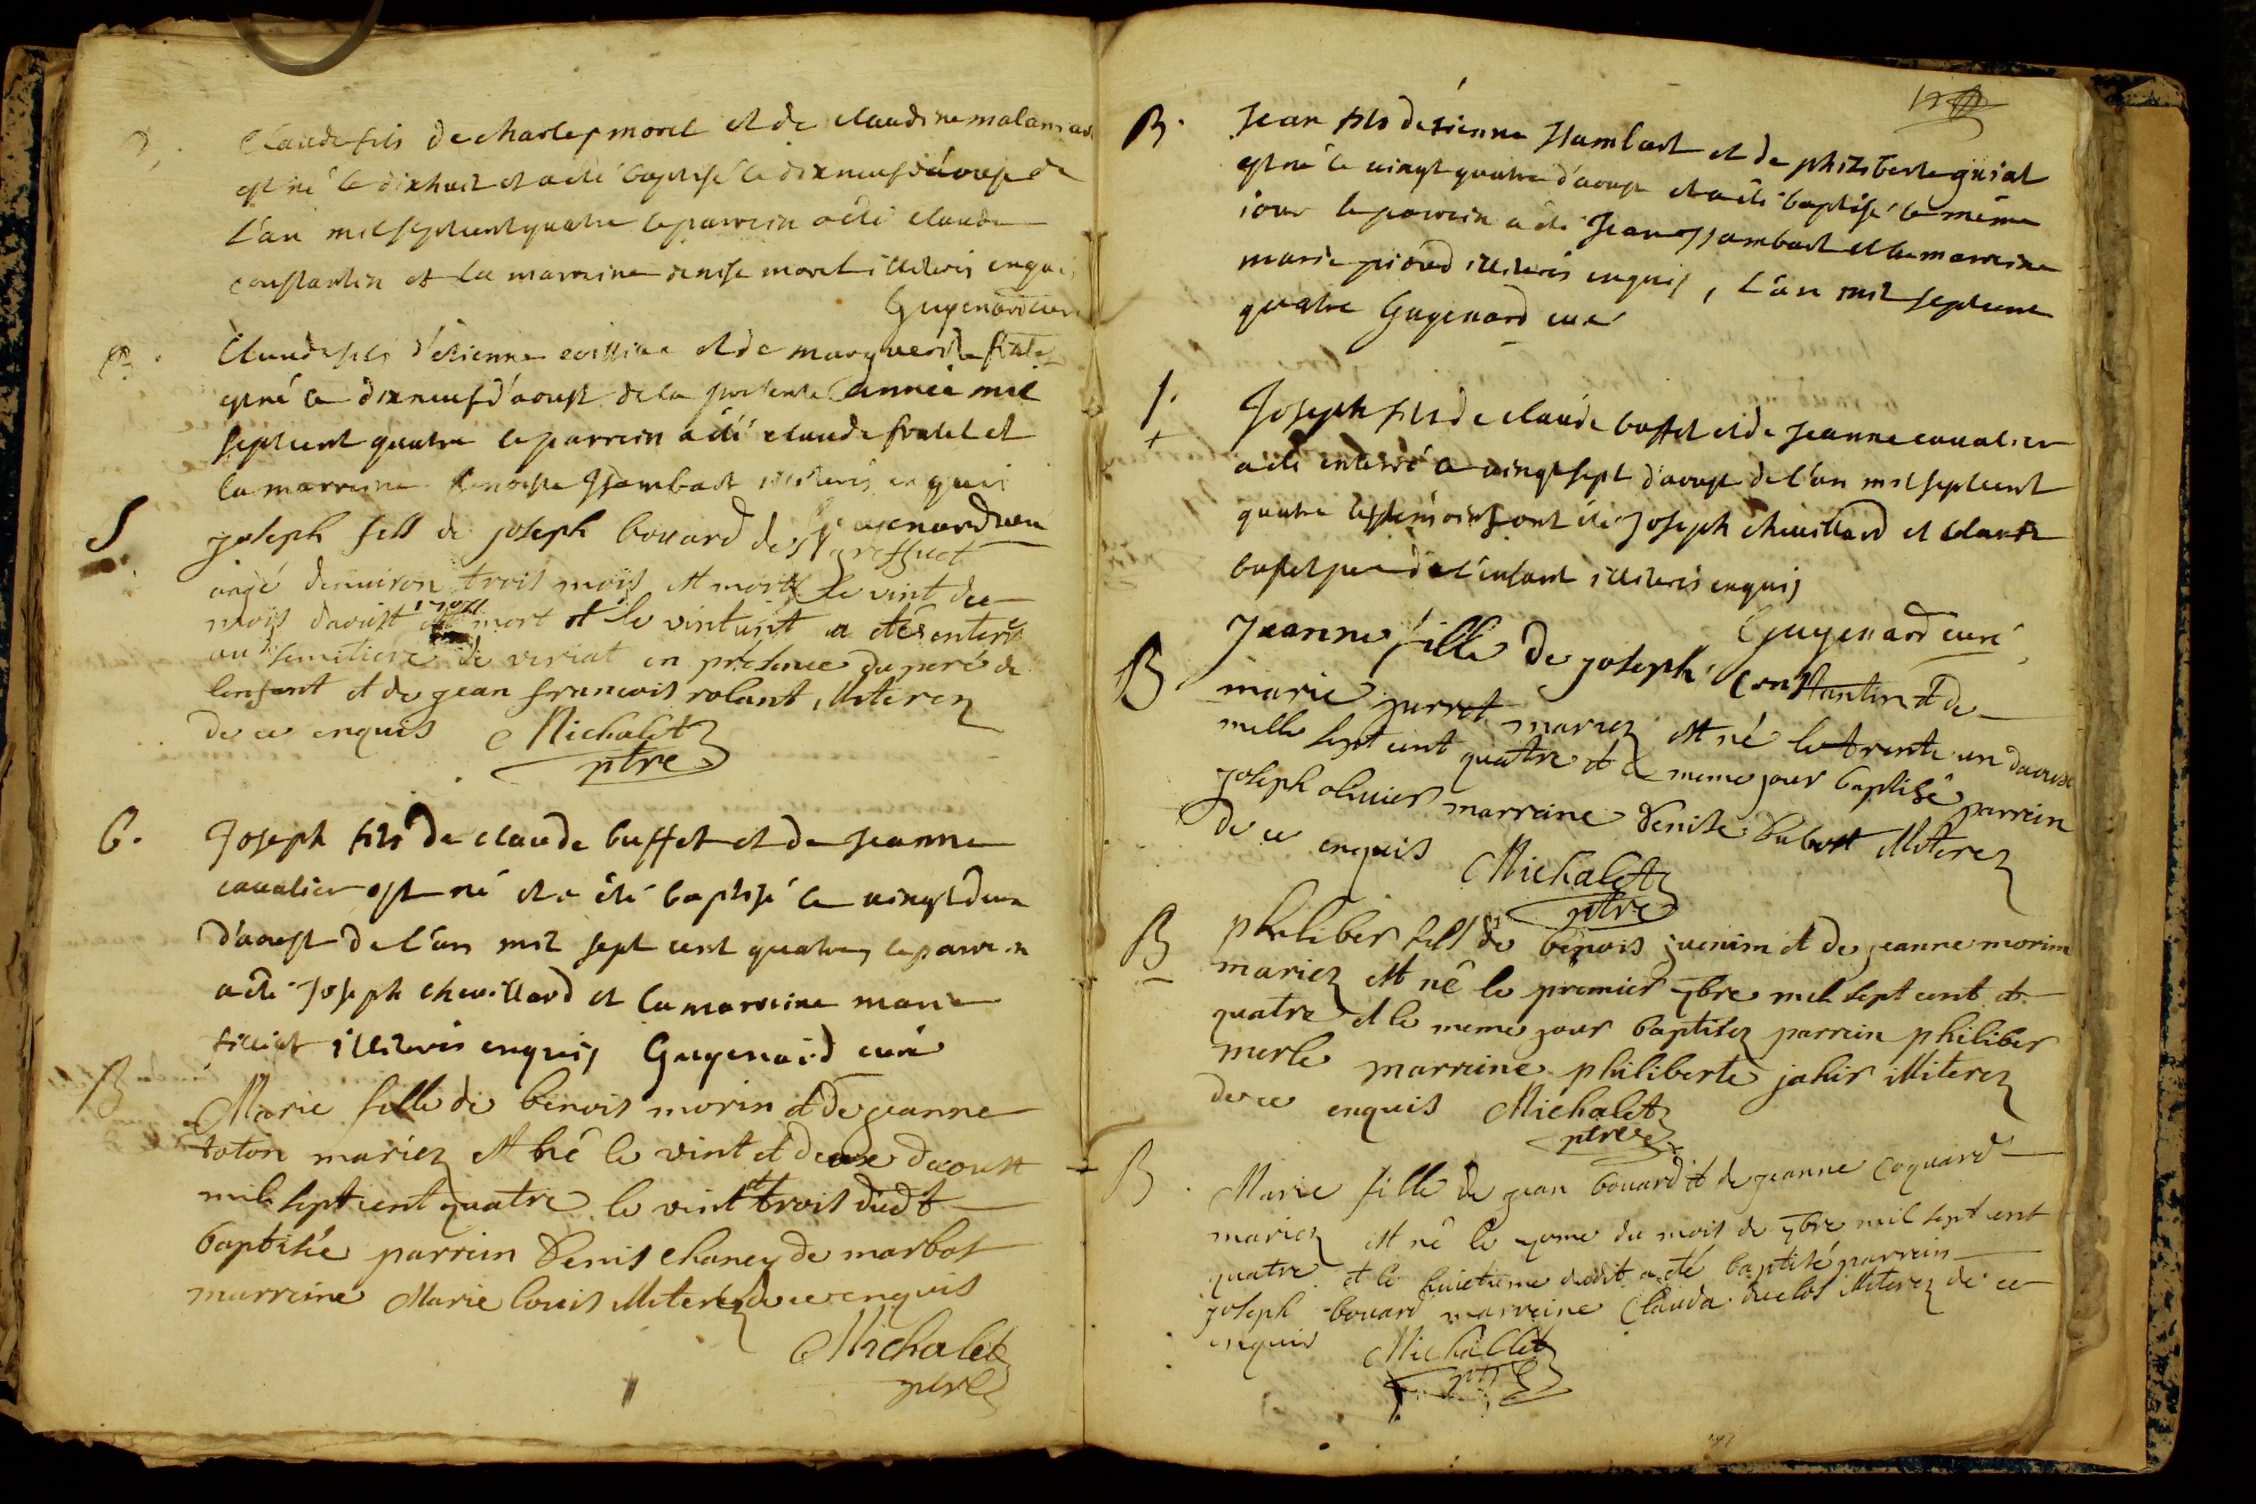 B.
Claude fils de charles morel et de claudine
est né le dixhuit et a été baptisé le dixneuf d'aoust de
l'an mil sept cent quatre le parrein a été claude
constantin et la marreine denise morel illiterés enquis
Guyenard curé
B.
Claude fils d'étienne et de marguerite
est né le dixneuf d'aoust de la presente année mil
sept cent quatre le parrein a été claude fratel et
la marreine benoiste Jsambart illiterés enquis
Guyenard curé
S.
joseph fils de joseph bouard des greffiet
angé denuiron trois mois est mort le vint du
mois daoust 1704 mort et le vintunt a été enteré
au semitiere de veriat en présence du peré de
lenfant et de jean francois rolant illiterez
de ce enquis Michalet
ptre
B.
Joseph fils de claude buffet et de jeanne
caualier est né et a été baptisé le vingt deux
d'aoust de l'an mil sept cent quatre, le parrein
a été Joseph cheuillard et la marreine marie
illiterés enquis Guyenard curé
B
Marie fille de benois morin et de jeanne
toton mariez est né le vint et deux daoust
mil sept cent quatre le vint et trois dudt
baptisée parrein Denis chaney de marbos
marreine Marie louis illiterez de ce enquis
Michalet
ptre
B.
Jean fils détienne Jsambart et de philiberte guiat
est né le vingt quatre d'aoust et a été baptisé le même
iour le parrein a été Jean Jsambart et la marreine
marie illiterés enquis, l'an mil sept cent
quatre Guyenard curé
S.
+
Joseph fils de claude buffet et de Jeanne caualier
a été enterré le vingt sept d'aoust de l'an mil sept cent
quatre les témoins ont été Joseph cheuillard et claude
bufet pere de l'enfant illiterés enquis
Guyenard curé
B
Jeanne fille de joseph Constantin et de
marie perret mariez est né le trente un daoust
mille sept cent quatre et le meme jour baptisé parrein
joseph oliuier marreine Denise Dubost illiterez
de ce enquis Michalet
ptre
B
philiber fils de benois juenim et de jeanne morim
mariez est né le premier 7bre mil sept cent et
quatre et le meme jour baptisez parrein philiber
merle marreine philiberte jahir illiterez
de ce enquis Michalet
ptre
B.
Marie fille de jean bouard et de jeanne Coquard
mariez est né le 7eme du mois de 7bre mil sept cent
quatre et le huictieme dudit a été baptisé parrein
joseph bouard marreine Clauda duclos illiterez de ce
enquis Michallet
ptre